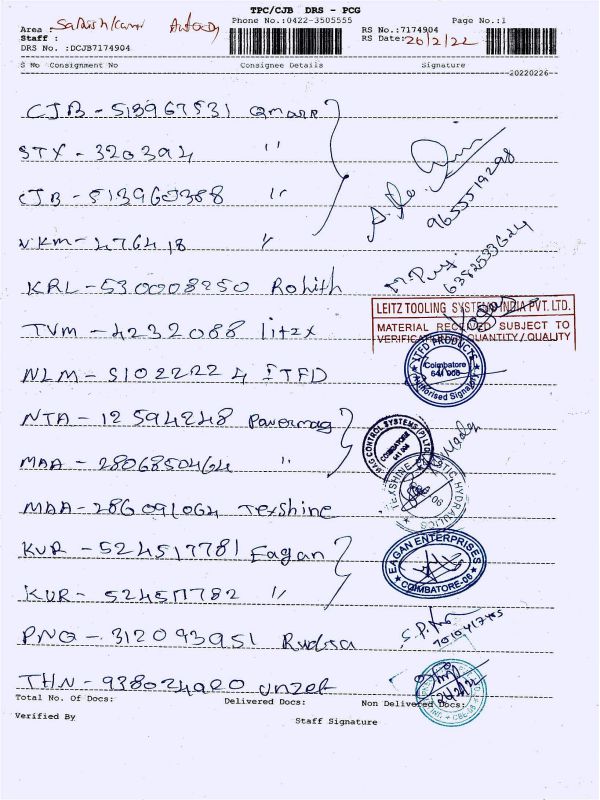 TPC/CJB DRS - PCG
Phone No.:0422-3505555 Page No.:1
Area :
Staff :
DRS No. :DCJB7174904
RS No.:7174904
RS Date: 26/2/22
S No Consignment No Consignee Details Signature
20220226
CJB - 513967531
STX - 320394 "
CJB - 513960388 "
NKM - 476418 "
9655519298
M.
6382533624
KRL - 530008250 Rohith
LEITZ TOOLING SYSTEMS INDIA PVT. LTD.
MATERIAL RECEIVED SUBJECT TO
VERIFICATION QUANTITY / QUALITY
TVM - 4232088 litzx
ITFD PRODUCTS
Coimbatore
641 006
Authorised Signatory
NLM - 5102222 4 ITFD
NTA - 12594248 Powermag
MAG CONTROL SYSTEMS (P) LTD
COIMBATORE
MAA - 2806850464 "
TEXSHINE HYDRAULICS
MAA - 286091064 Texshine
KUR - 524517781 Eagan
EAGAN ENTERPRISES
COIMBATORE-06
KUR - 524517782 "
PNQ - 312093951
S.P.
THN - 938024900
Total No. Of Docs: Delivered Docs: Non Delivered Docs:
Verified By Staff Signature